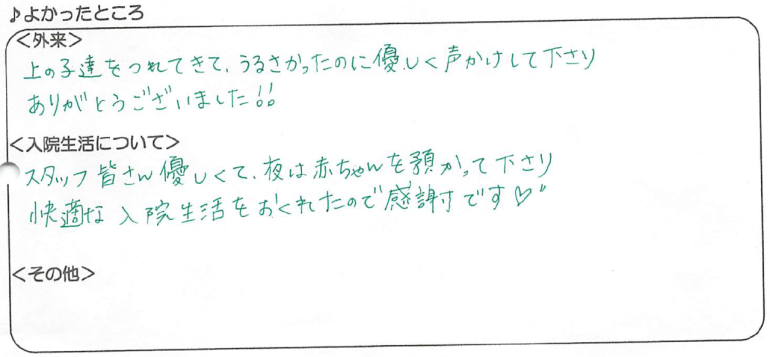 ♪よかったところ
＜外来＞
上の子達をつれてきて、うるさかったのに優しく声かけして下さり
ありがとうございました!!
＜入院生活について＞
スタッフ皆さん優しくて、夜は赤ちゃんを預かって下さり
快適な入院生活をおくれたので感謝です♡"
＜その他＞